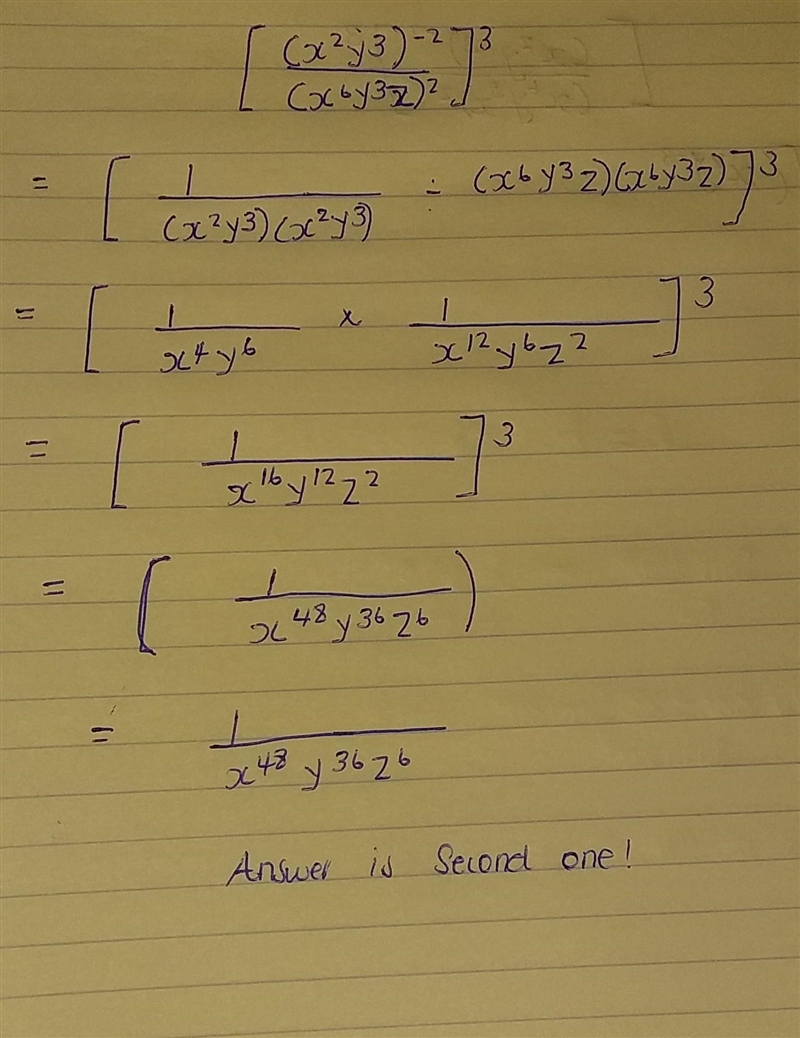 [ (x²y3)⁻² / (x⁶y³z)² ]³
= [ 1 / (x²y³)(x²y³) ÷ (x⁶y³z)(x⁶y³z) ]³
= [ 1 / x⁴y⁶ × 1 / x¹²y⁶z² ]³
= [ 1 / x¹⁶y¹²z² ]³
= ( 1 / x⁴⁸y³⁶z⁶ )
= 1 / x⁴⁸y³⁶z⁶
Answer is Second one!